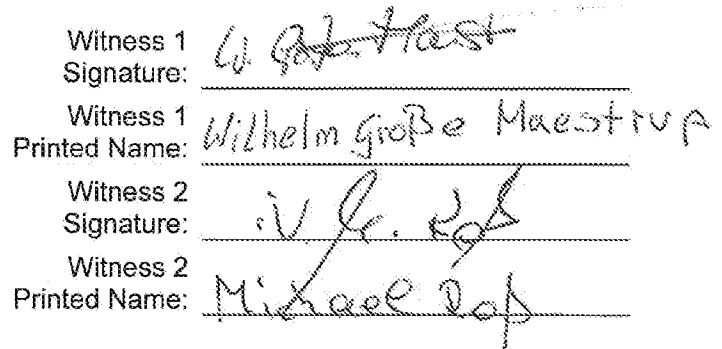 Witness 1
Signature:
Witness 1
Printed Name: Wilhelm Große Maestrup
Witness 2
Signature:
Witness 2
Printed Name: Michael